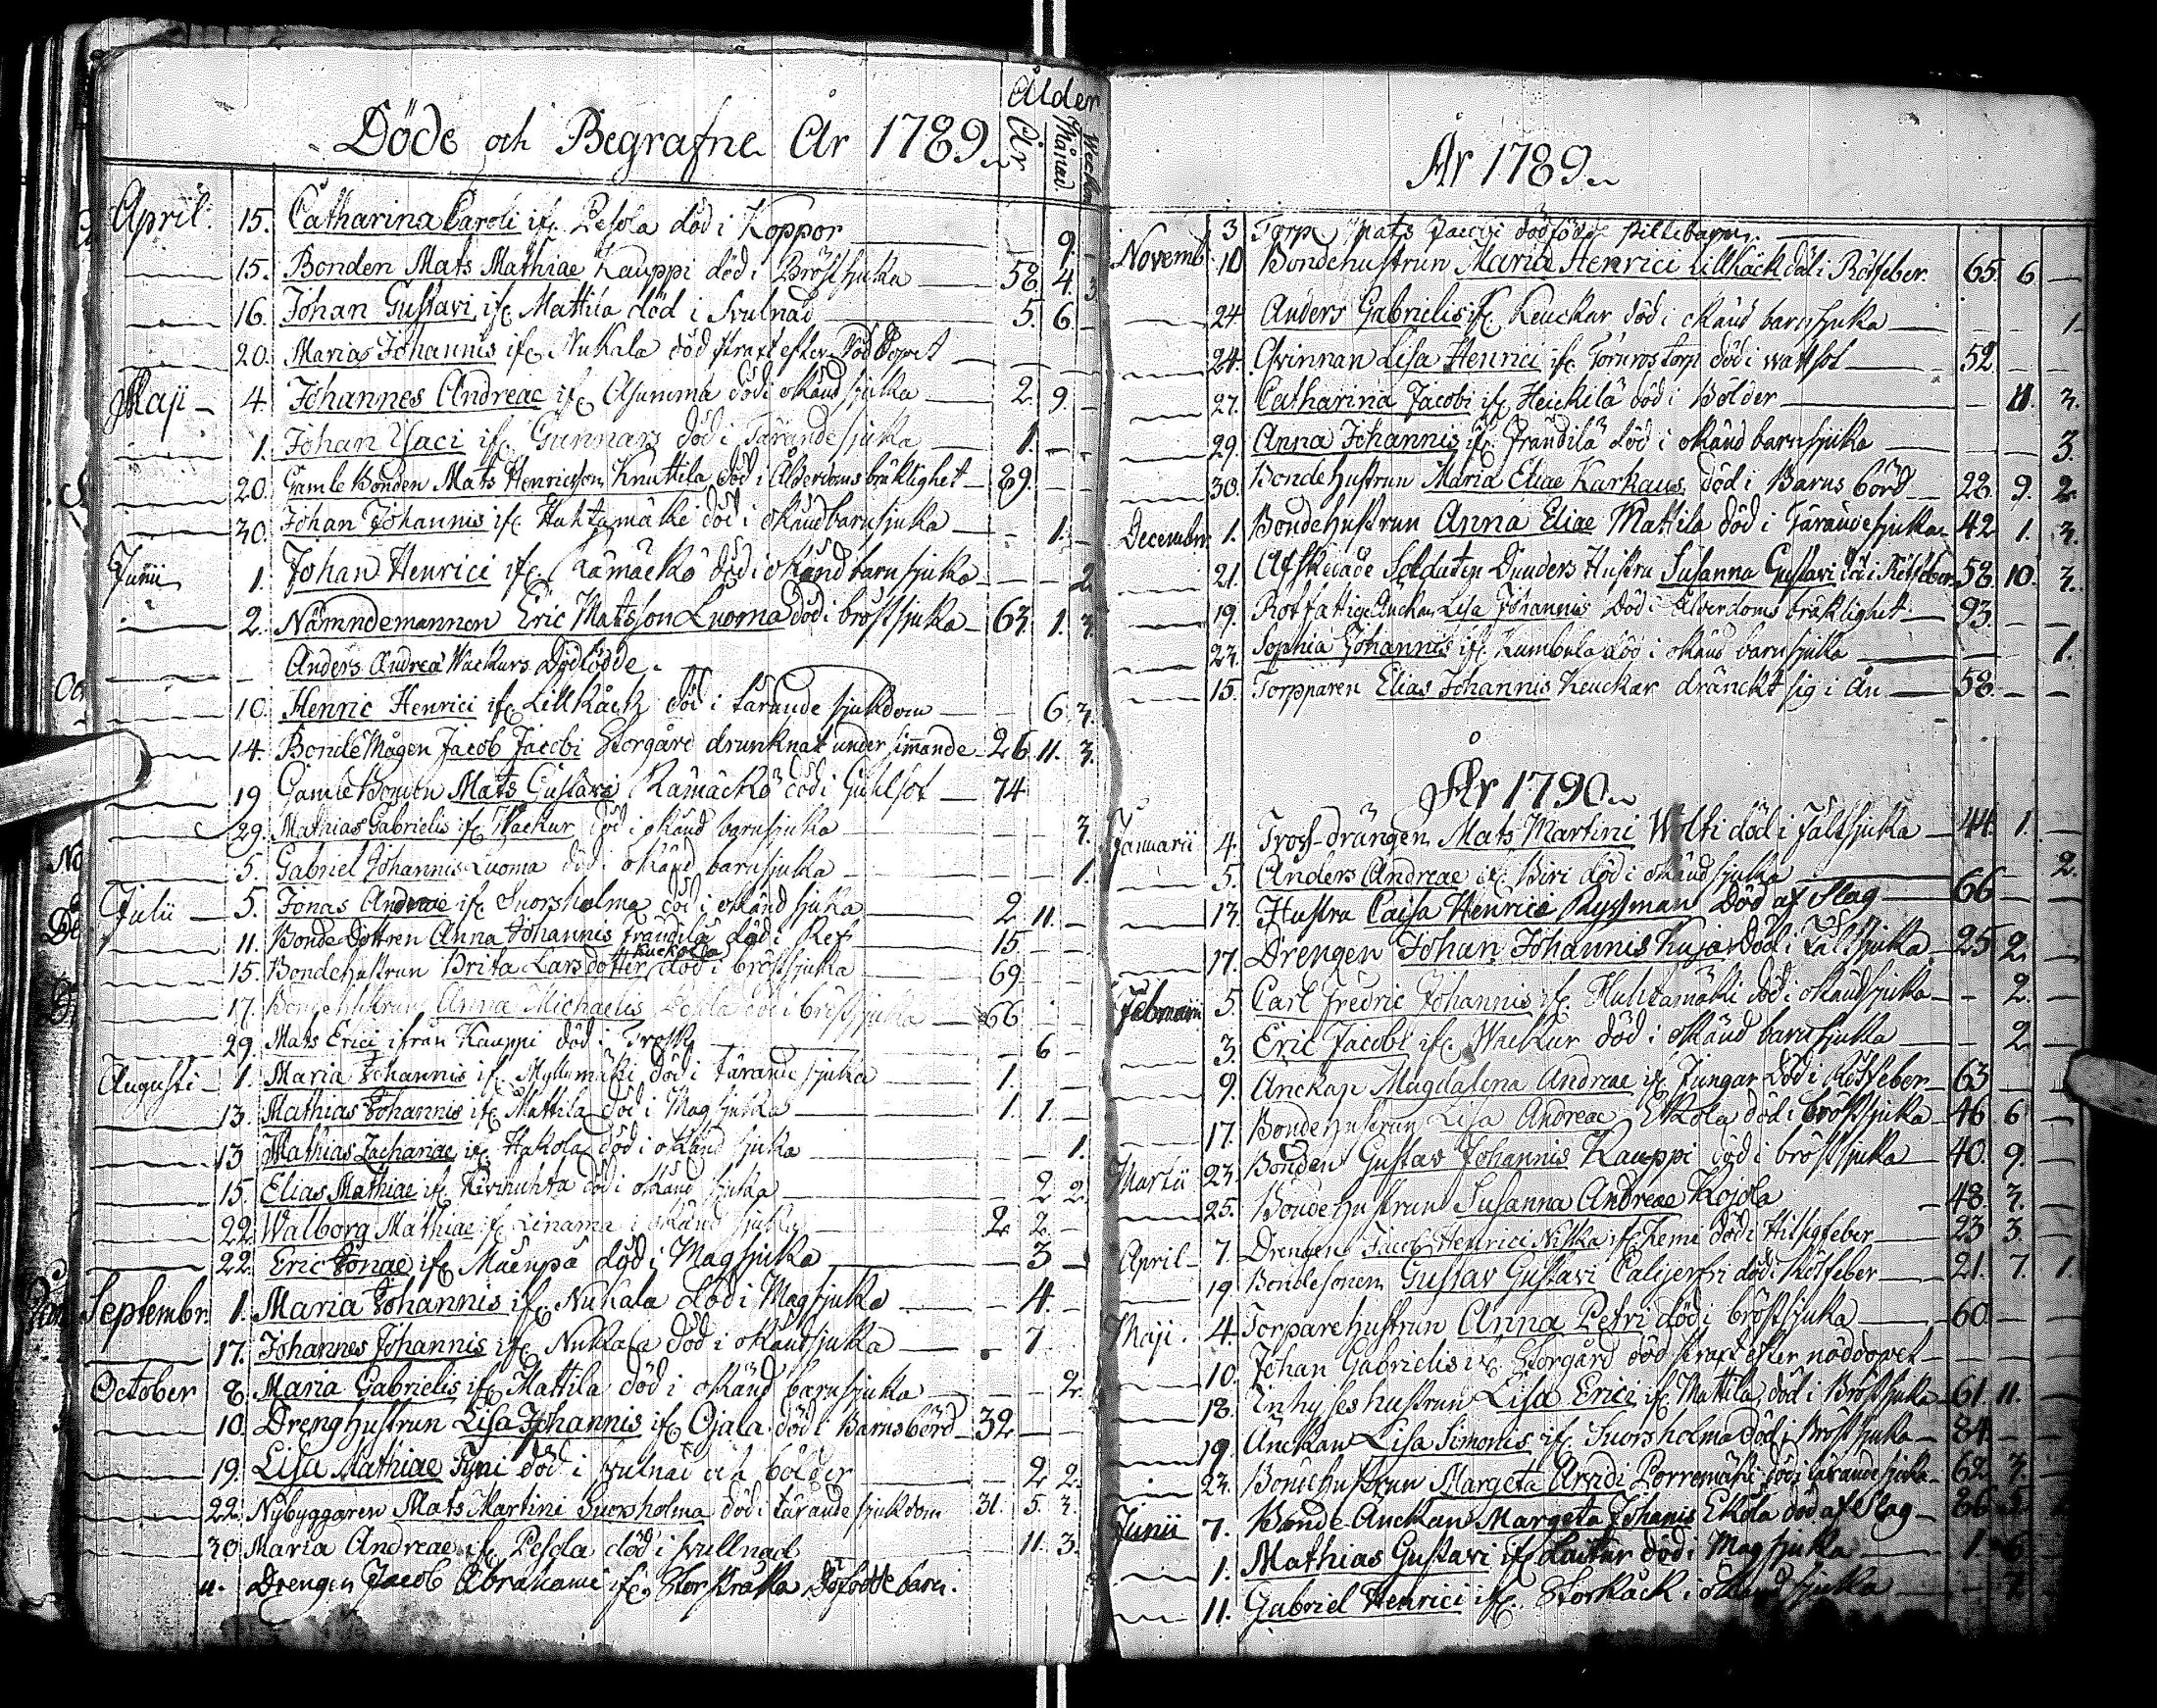 Ålder
Döde och Begrafne År 1789
År Månad. Weckor
April. 15. Catharina Caroli ifr. Pesola död i Koppor — 9. -
15. Bonden Mats Mathiae Kauppi död i Bröstsjuka 58. 4. 3.
16. Johan Gustavi ifr. Mattila död i svulnad 5. 6. -
20. Marias Johannis ifr. Nukala död straxt efter Nöd Dopet
Maji 4. Johannes Andreae ifr. Asumma död i okänd sjuka 2. 9. -
1. Johan Isaci ifr. Gunnars död i Tärande sjuka 1. - -
20. Gamle Bonden Mats Henricsson Knuttila död i Ålderdoms bräklighet 89.
30. Johan Johannis ifr. Huhtamäki död i okänd barnsjuka - 1. -
Junii 1. Johan Henrici ifr. Rämäckö död i okänd barnsjuka - - 2
2. Nämndemannen Eric Matsson Luoma död i bröstsjuka 63. 1. 3.
Anders Andreae Wackurs Dödfödde.
10. Henric Henrici ifr. Lillkäck död i tärande sjukdom - 6. 3.
14. Bonde Mågen Jacob Jacobi Storgård drunknat under simmande 26. 11. 3.
19 Gamle Bonden Mats Gustavi Rämäckö död i Guhlsot 74
29. Mathias Gabrielis ifr. Wackur död i okänd barnsjuka 3.
5. Gabriel Johannis Luoma död i okänd barnsjuka 1.
Julii 5. Jonas Andreae ifr. Suorsholma död i okänd sjuka 2. 11. -
11. Bonde Dottren Anna Johannis Frändilä död i Ref 15
15. Bondehustrun Brita Larsdotter död i bröstsjuka 69
17. Bondehustrun Anna Michaelis Pesola död i bröstsjuka 66
29. Mats Erici ifrån Kauppi död i Tresk - 6 -
Augusti 1. Maria Johannis ifr. Myllymäki död i tärande sjuka 1.
13. Mathias Johannis ifr. Mattila död i Magsjuka 1. 1. -
13 Mathias Zachariae ifr. Hakola död i okänd sjuka 1.
15. Elias Mathiae ifr. Kivihuhta död i okänd sjuka - 2 2.
22. Walborg Mathiae ifr. Linama i okänd sjuka 2 2 -
22. Eric Jonae ifr. Mäenpä död i Magsjuka 3 -
Septembr. 1. Maria Johannis ifr. Nukala död i Magsjuka - 4. -
17. Johannes Johannis ifr. Nukala död i okänd sjuka - 7
October 8. Maria Gabrielis ifr. Mattila död i okänd barnsjuka - - 2.
10. Drenghustrun Lisa Johannis ifr. Ojala död i Barnsbörd 32
19. Lisa Mathiae Tyni död i svulnad och bölder - 2 2.
22. Nybyggaren Mats Martini Suorsholma död i tärande sjukdom 31. 5. 3.
30 Maria Andreae ifr. Pesola död i svullnad 11. 3.
Drengen Jacob Abrahami ifr. Storkråka Döfödde barn.
År 1789
3 Torp. Mats Jacobi dödfödde pillebarn.
Novemb. 10 Bondehustrun Maria Henrici Lillkäck död i Rötfeber. 65. 6 -
24. Anders Gabrielis ifr. Keuckar död i okänd barnsjuka 1
24. Qvinnan Lisa Henrici ifr. död i wattsot 52.
27. Catharina Jacobi ifr. Heickilä död i Bölder - 11. 3.
29. Anna Johannis ifr. Frändilä död i okänd barnsjuka 3.
30. Bondehustrun Maria Eliae Karhaus död i Barnsbörd 28. 9. 2
Decembr. 1. Bondehustrun Anna Eliae Mattila död i Tärande sjuka 42 1. 3.
21. Afskedade Soldaten Dunders Hustru Susanna Gustavi död i Rötfeber 58. 10. 3.
19. Rotfattige Änckan Lisa Johannis Död i Ålderdoms bräklighet 93.
23. Sophia Johannis ifr. Kumbula död i okänd barnsjuka 1.
15. Torpparen Elias Johannis Keuckar dränckt sig i Ån 58. - -
År 1790
Januarii 4. Tross-drängen Mats Martini Wolti död i Fältsjuka 44. 1. -
5. Anders Andreae ifr. Biri död i okänd sjuka 2.
13. Hustru Caisa Henrici Ryssman Död af Slag 66
17. Drengen Johan Johannis Kuja Död i Fältsjuka 25 2. -
Februarii 5. Carl Fredric Johannis ifr. Huhtamäki död i okänd sjuka - 2. -
3. Eric Jacobi ifr. Wackur död i okänd barnsjuka - 2
9. Änckan Magdalena Andreae ifr. Jungar död i Rötfeber 63
17. Bondehustrun Lisa Andreae Ekola död i bröstsjuka 46 6 -
Martii 23. Bonden Gustav Johannis Kauppi död i bröstsjuka 40. 9. -
25. Bondehustrun Susanna Andreae Kojola 48. 3. -
April 7. Drengen Jacob Henrici Nilka ifr. Kemi död i Hitsigfeber 23 3. -
19 Bondesonen Gustav Gustavi död i Rötfeber 21. 7. 1.
Maji. 4. Torparehustrun Anna Petri död i bröstsjuka 60. - -
10. Johan Gabrielis ifr. Storgård död straxt efter nöddopet
18. Inhyseshustrun Lisa Erici ifr. Mattila död i Bröstsjuka 61. 11. -
19. Änckan Lisa Simonis ifr. Suorsholma Död i Bröstsjuka 84.
23. Bondehustrun Margeta Arvidi Porremäki död i tärande sjuka 62. 3. -
Junii 7. Bonde Änckan Margeta Johanis Ekola död af Slag 86 5.
1. Mathias Gustavi ifr. död i Magsjuka 1 6
11. Gabriel Henrici ifr. Storkäck i okänd sjuka